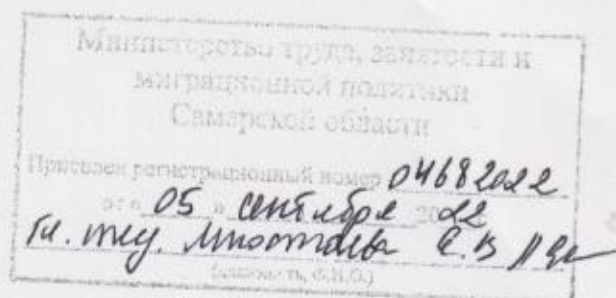 Министерство труда, занятости и
миграционной политики
Самарской области
Присвоен регистрационный номер 04682022
от « 05 » сентября 2022
Гл.
(должность, Ф.И.О.)